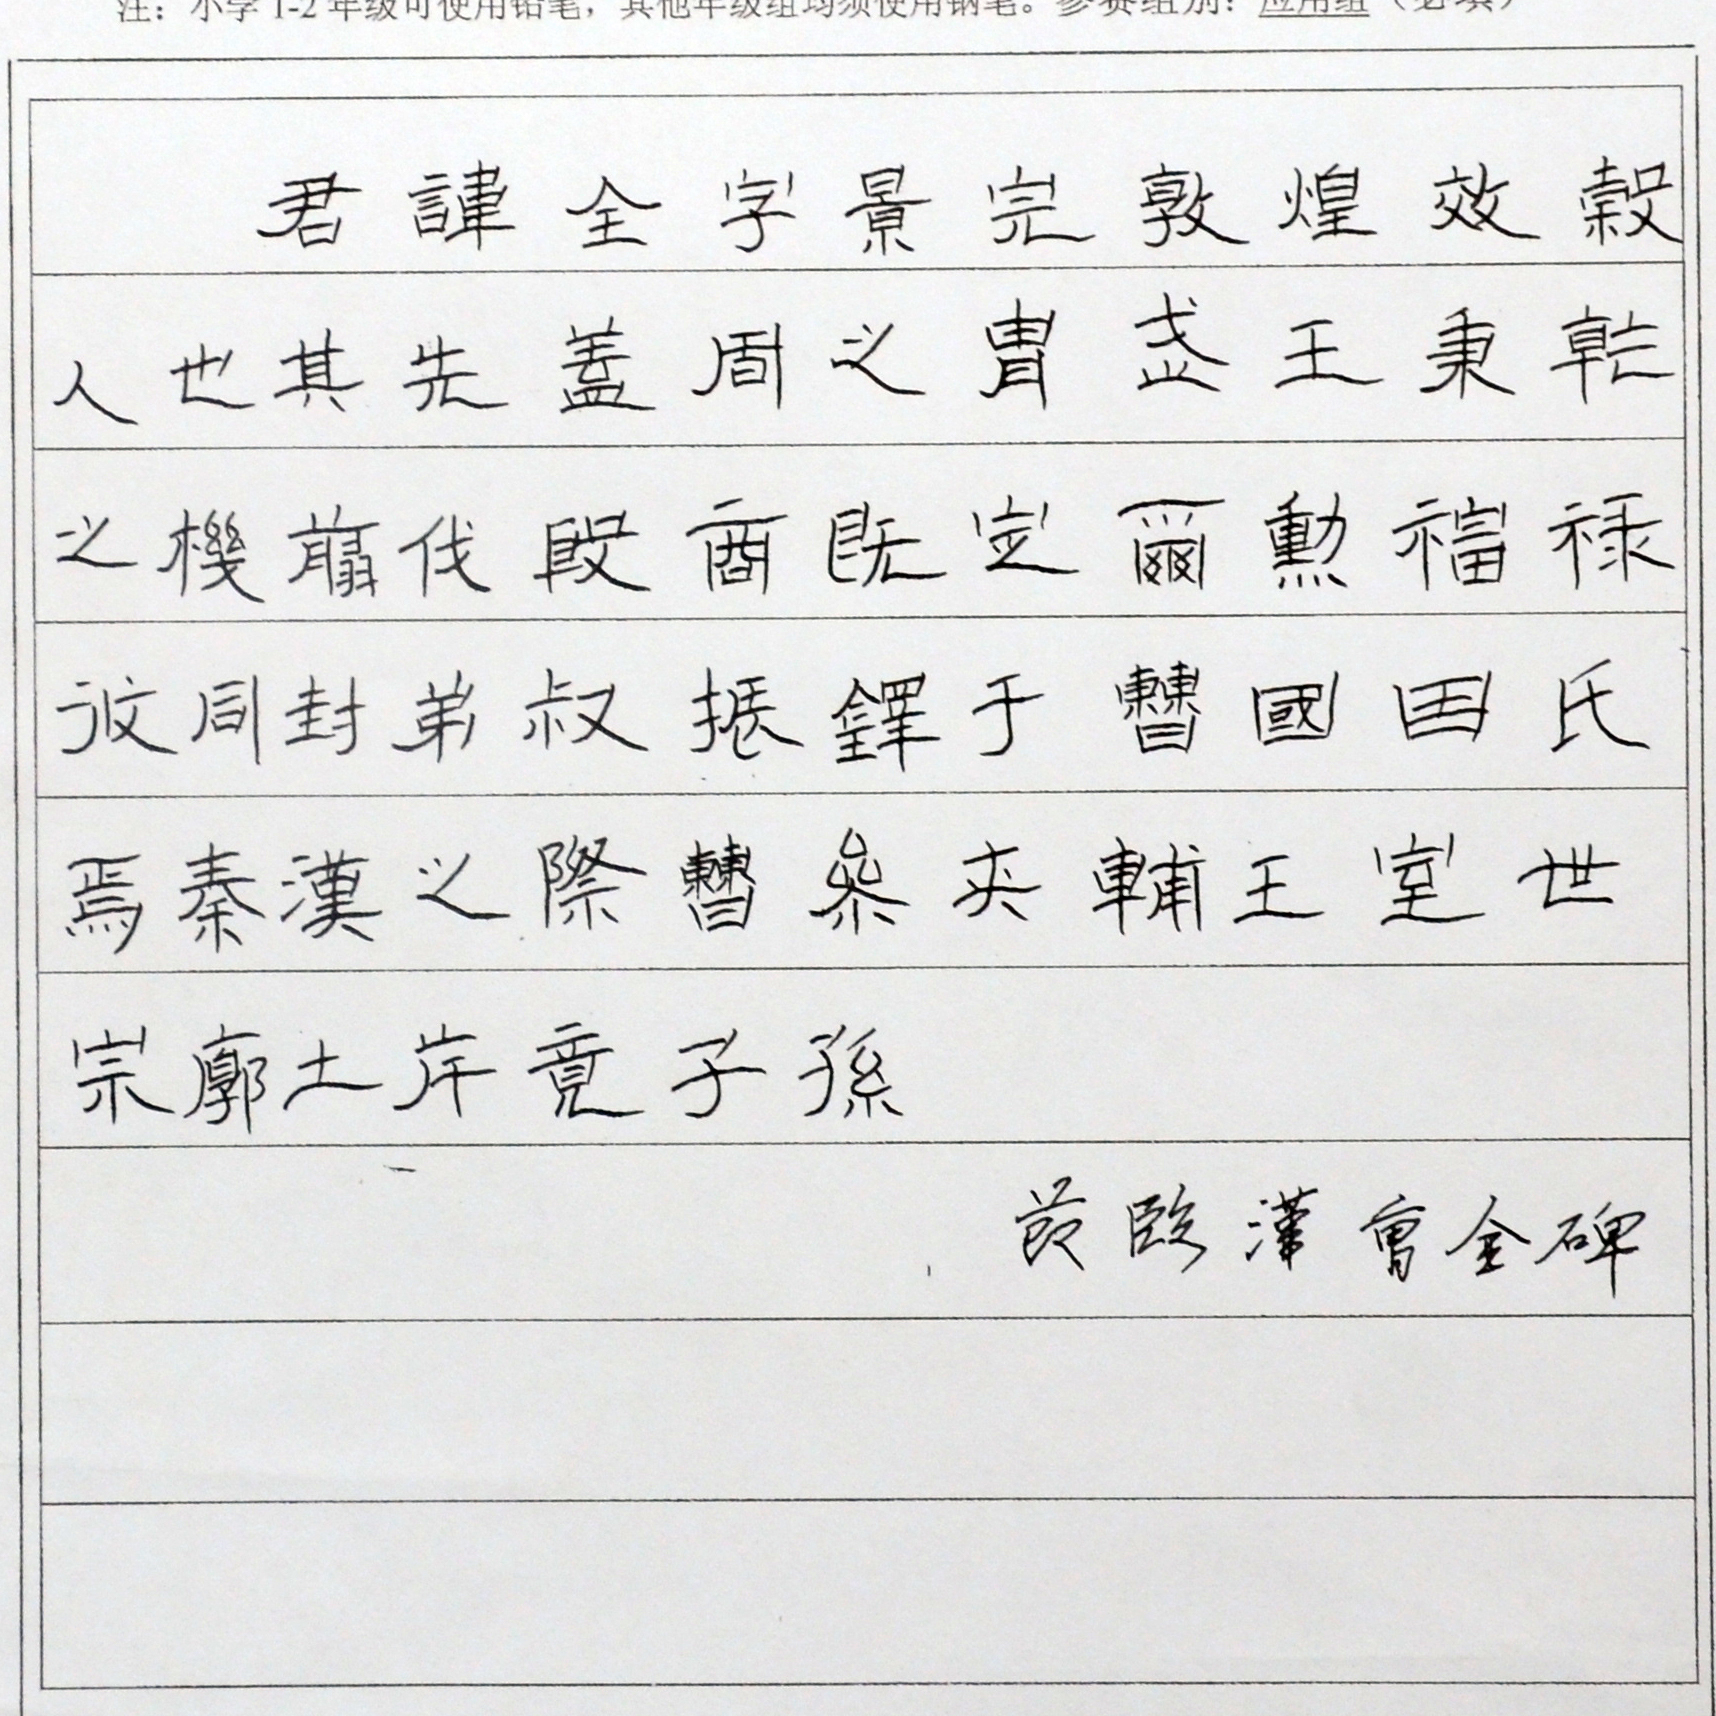 注：小学1-2年级可使用铅笔，其他年级组均须使用钢笔。参赛组别：应用组（必填）
君諱全字景完敦煌效穀
人也其先蓋周之胄武王秉乾
之機翦伐殷商既定爾勳福祿
攸同封弟叔振鐸于曹國因氏
焉秦漢之際曹參夾輔王室世
宗廓土斥竟子孫
節臨漢曹全碑